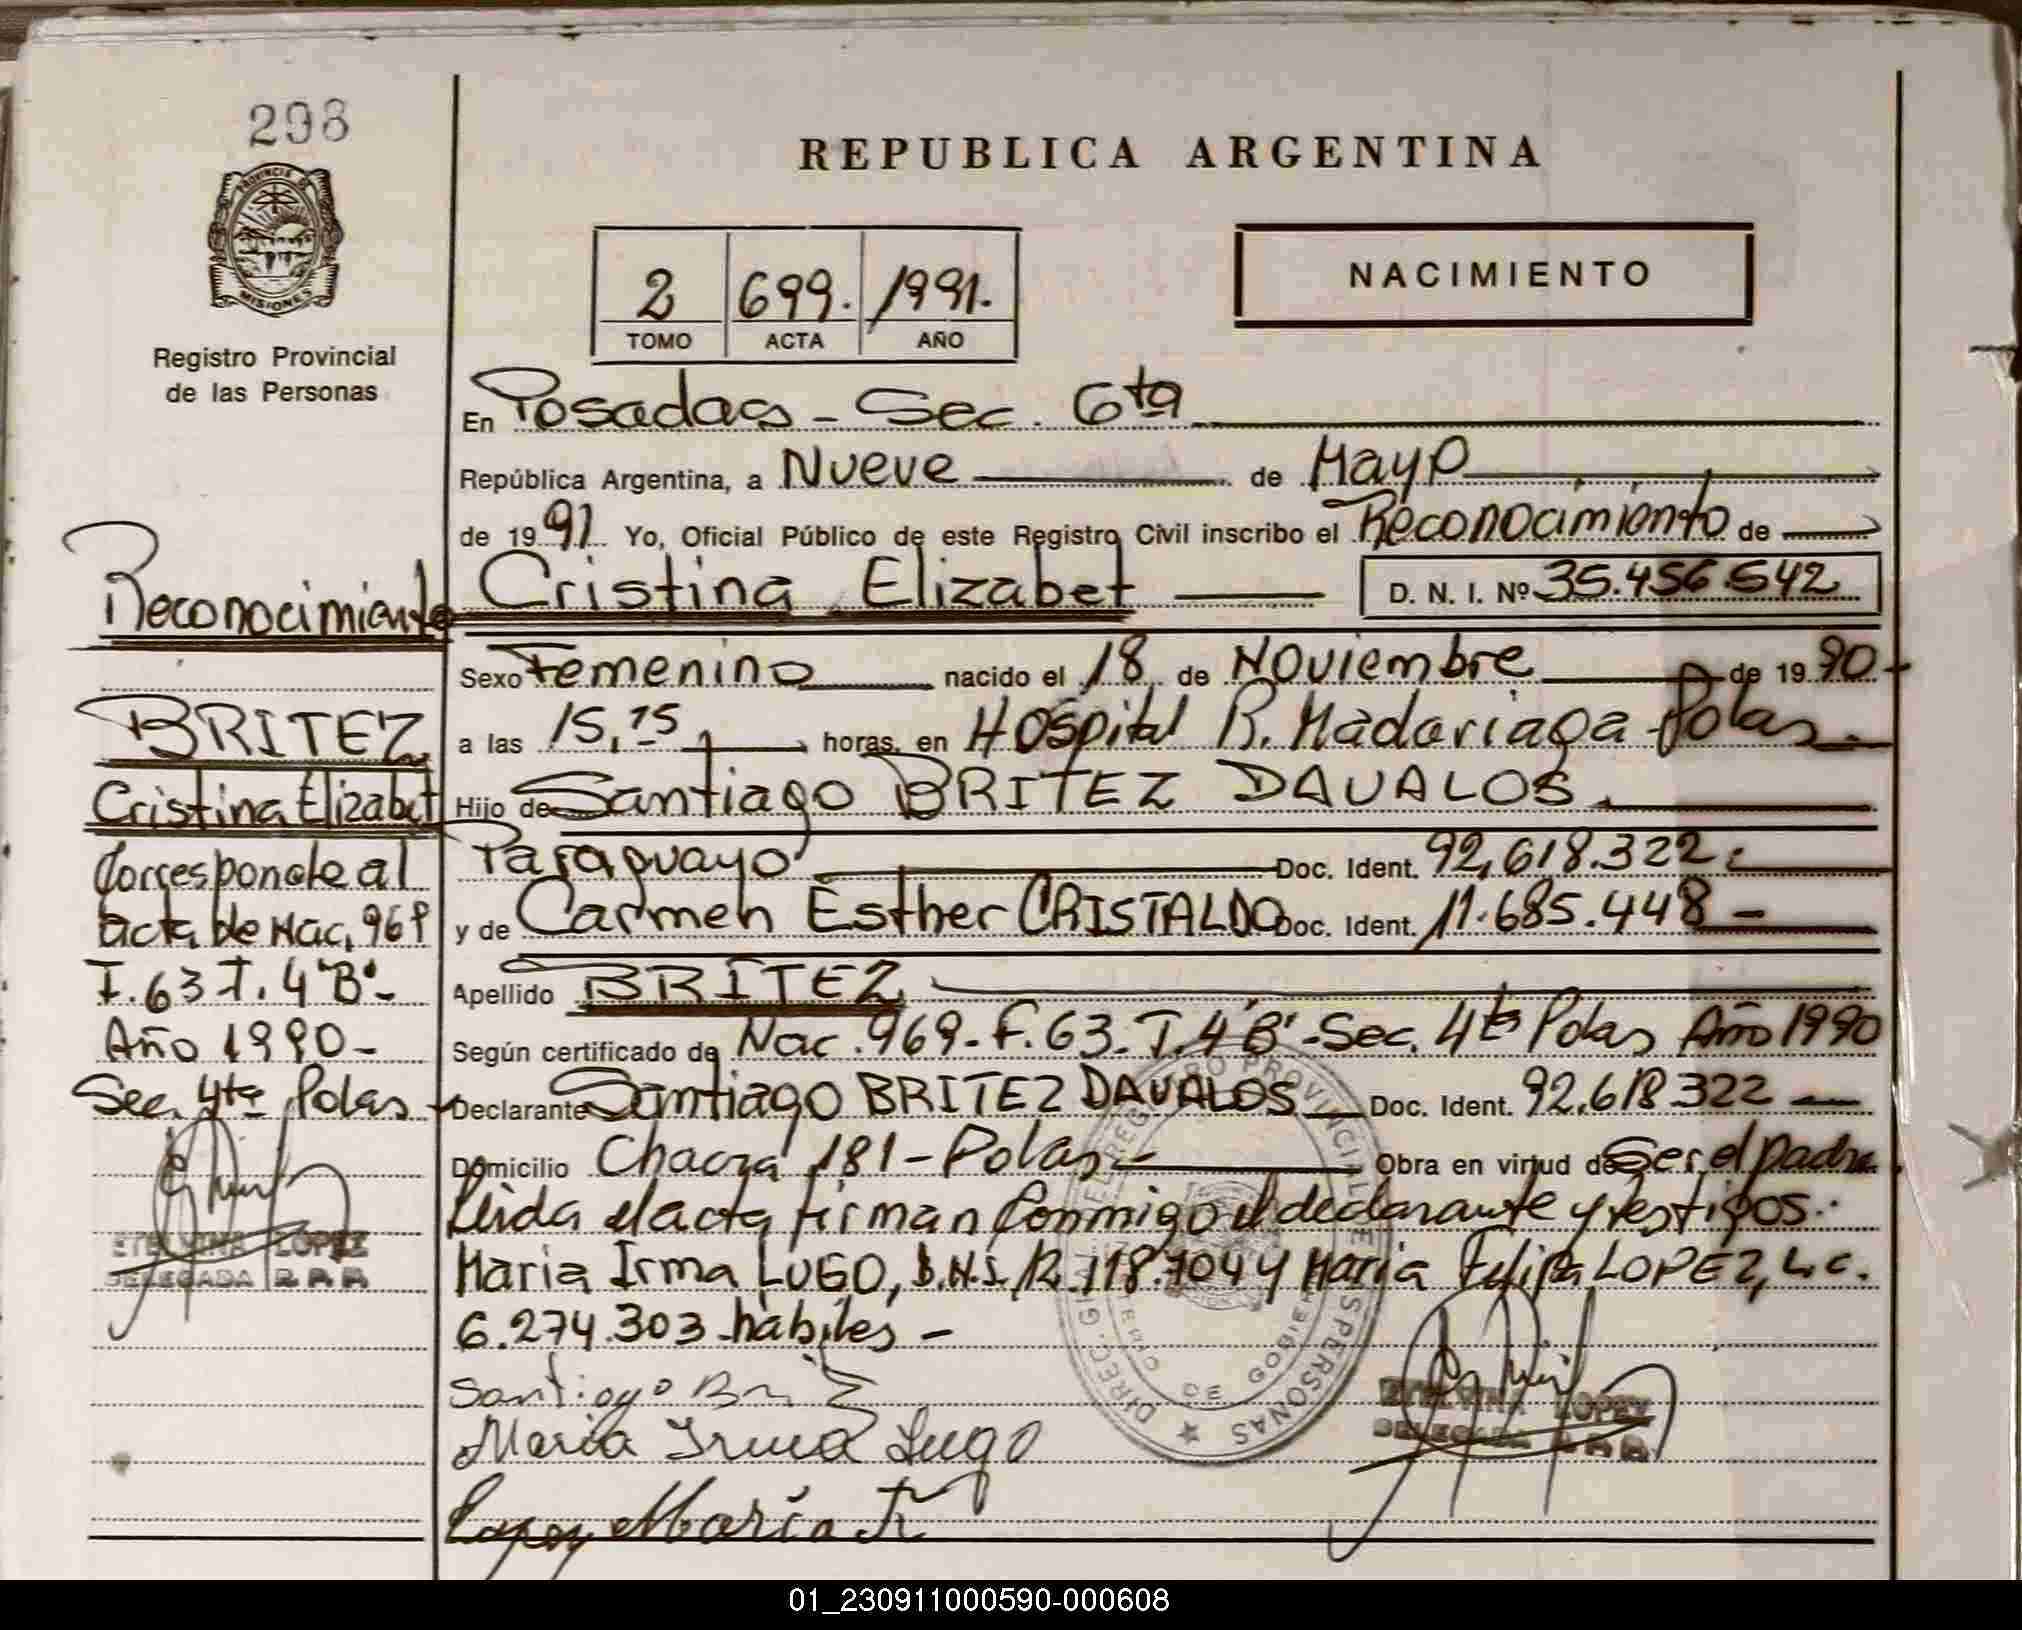 298
PROVINCIA DE
MISIONES
Registro Provincial
de las Personas
REPUBLICA ARGENTINA
2 699. 1991.
TOMO ACTA AÑO
NACIMIENTO
En Posadas - Sec. 6ta
República Argentina, a Nueve de Mayo
de 1991 Yo, Oficial Público de este Registro Civil inscribo el Reconocimiento de
Cristina Elizabet D. N. I. Nº 35.456.542
Sexo Femenino nacido el 18 de Noviembre de 1990-
a las 15,15 horas, en Hospital R. Madariaga Pdas
Hijo de Santiago BRITEZ DAVALOS.
Paraguayo Doc. Ident. 92,618.322
y de Carmen Esther CRISTALDO Doc. Ident. 11.685.448 -
Apellido BRITEZ
Según certificado de Nac. 969- F. 63- T. 4 "B" - Sec. 4ta Pdas Año 1990
Declarante Santiago BRITEZ DAVALOS Doc. Ident. 92.618.322 -
Domicilio Chacra 181 - Pdas Obra en virtud de Ser el padre
Leida el acta firman conmigo el declarante y testigos.
Maria Irma LUGO, D.N.I. 12.118.704 y Maria Felipa LOPEZ, L.C.
6.274.303 habiles -
Santiago Britez
Maria Irma Lugo
Lopez Maria F
ETELVINA LOPEZ
DELEGADA R.P.P.
Reconocimiento
BRITEZ
Cristina Elizabet
Corresponde al
acta de Nac. 969
F. 63 T. 4 "B"-
Año 1990-
Sec. 4ta Pdas
ETELVINA LOPEZ
DELEGADA R.P.P.
01_230911000590-000608